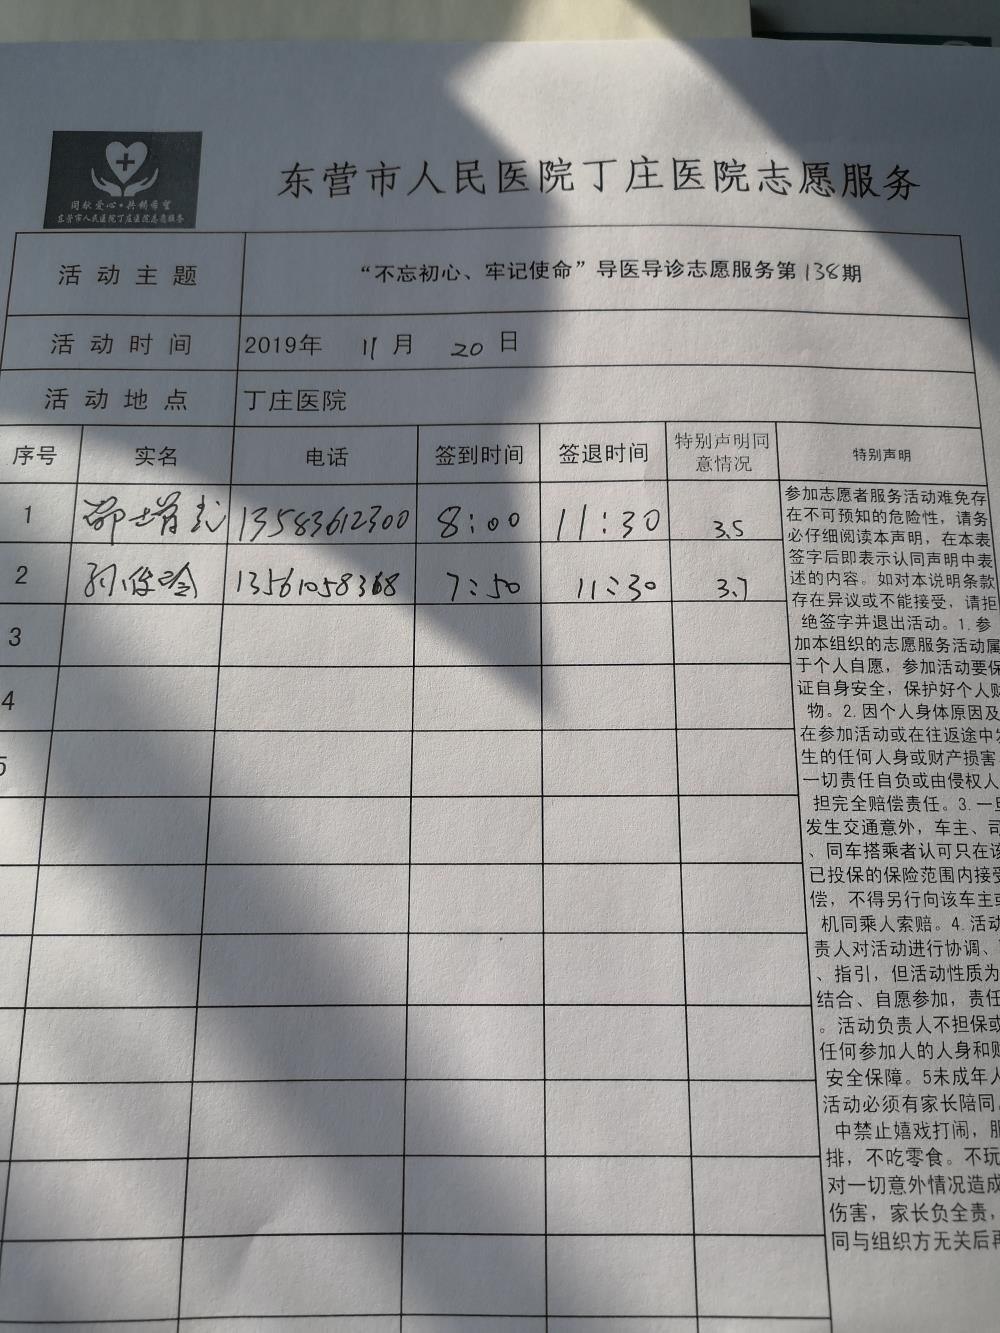 同献爱心·共铸希望
东营市人民医院丁庄医院志愿服务
东营市人民医院丁庄医院志愿服务
活动主题 “不忘初心、牢记使命”导医导诊志愿服务第138期
活动时间 2019年 11月 20日
活动地点 丁庄医院
序号 实名 电话 签到时间 签退时间 特别声明同意情况 特别声明
1 13583612300 8:00 11:30 3.5
2 孙俊玲 13561058368 7:50 11:30 3.7
3
4
5
参加志愿者服务活动难免存
在不可预知的危险性，请务
必仔细阅读本声明，在本表
签字后即表示认同声明中表
述的内容。如对本说明条款
存在异议或不能接受，请拒
绝签字并退出活动。1.参
加本组织的志愿服务活动属
于个人自愿，参加活动要保
证自身安全，保护好个人财
物。2.因个人身体原因及
在参加活动或在往返途中发
生的任何人身或财产损害
一切责任自负或由侵权人
担完全赔偿责任。3.一旦
发生交通意外，车主、司
、同车搭乘者认可只在该
已投保的保险范围内接受
偿，不得另行向该车主或
机同乘人索赔。4.活动
责人对活动进行协调、
、指引，但活动性质为
结合、自愿参加，责任
。活动负责人不担保或
任何参加人的人身和财
安全保障。5未成年人
活动必须有家长陪同。
中禁止嬉戏打闹，服
排，不吃零食。不玩
对一切意外情况造成
伤害，家长负全责，
同与组织方无关后再